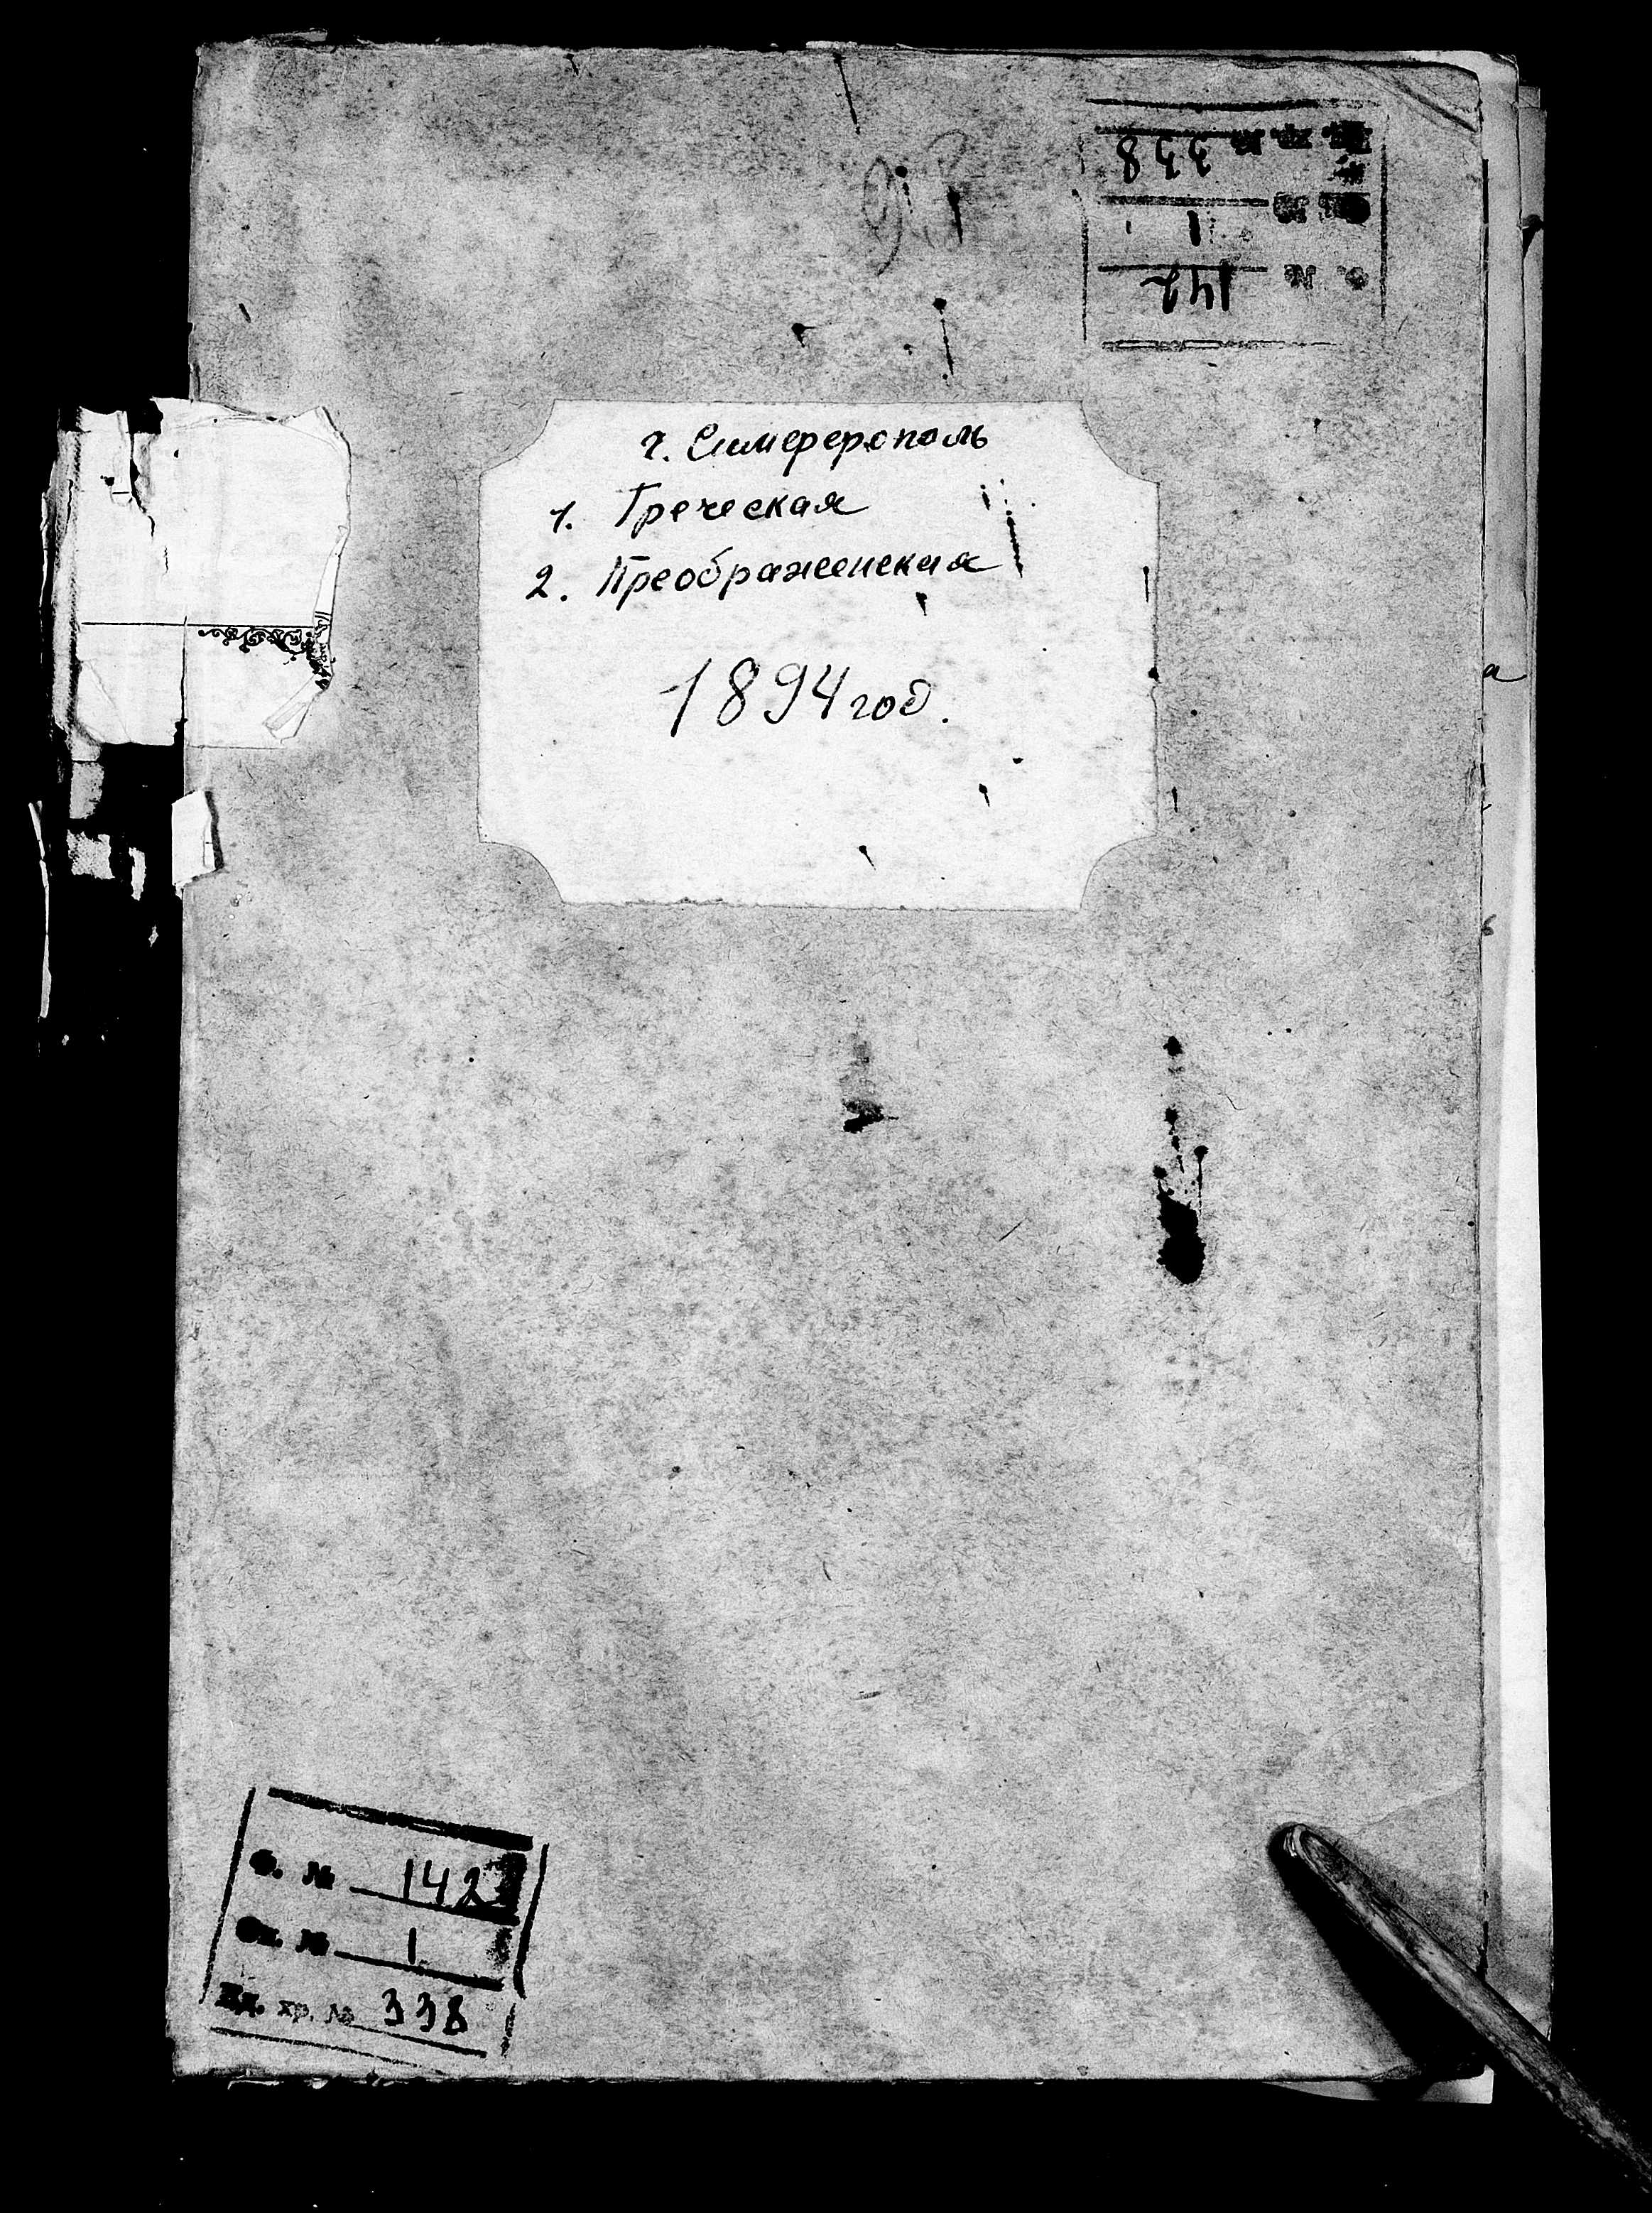 Ед. хр. № 338
Оп. № 1
Ф. № 142
г. Симферополь
1. Греческая
2. Преображенская
1894 год.
Ф. № 142
Оп. № 1
Ед. хр. № 338